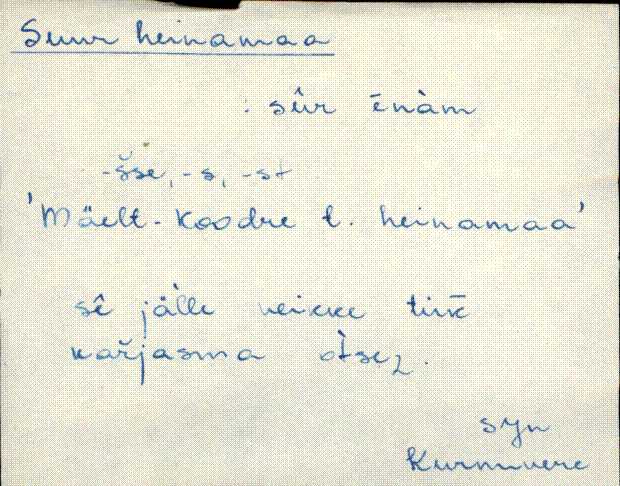 Suur heinamaa
: sûr ēnàm
-šse, -s, -st
'Mäelt-Koodre t. heinamaa'
sê jälle veikke tiik̄
kařjasma òtsez.
syn
Kurmvere